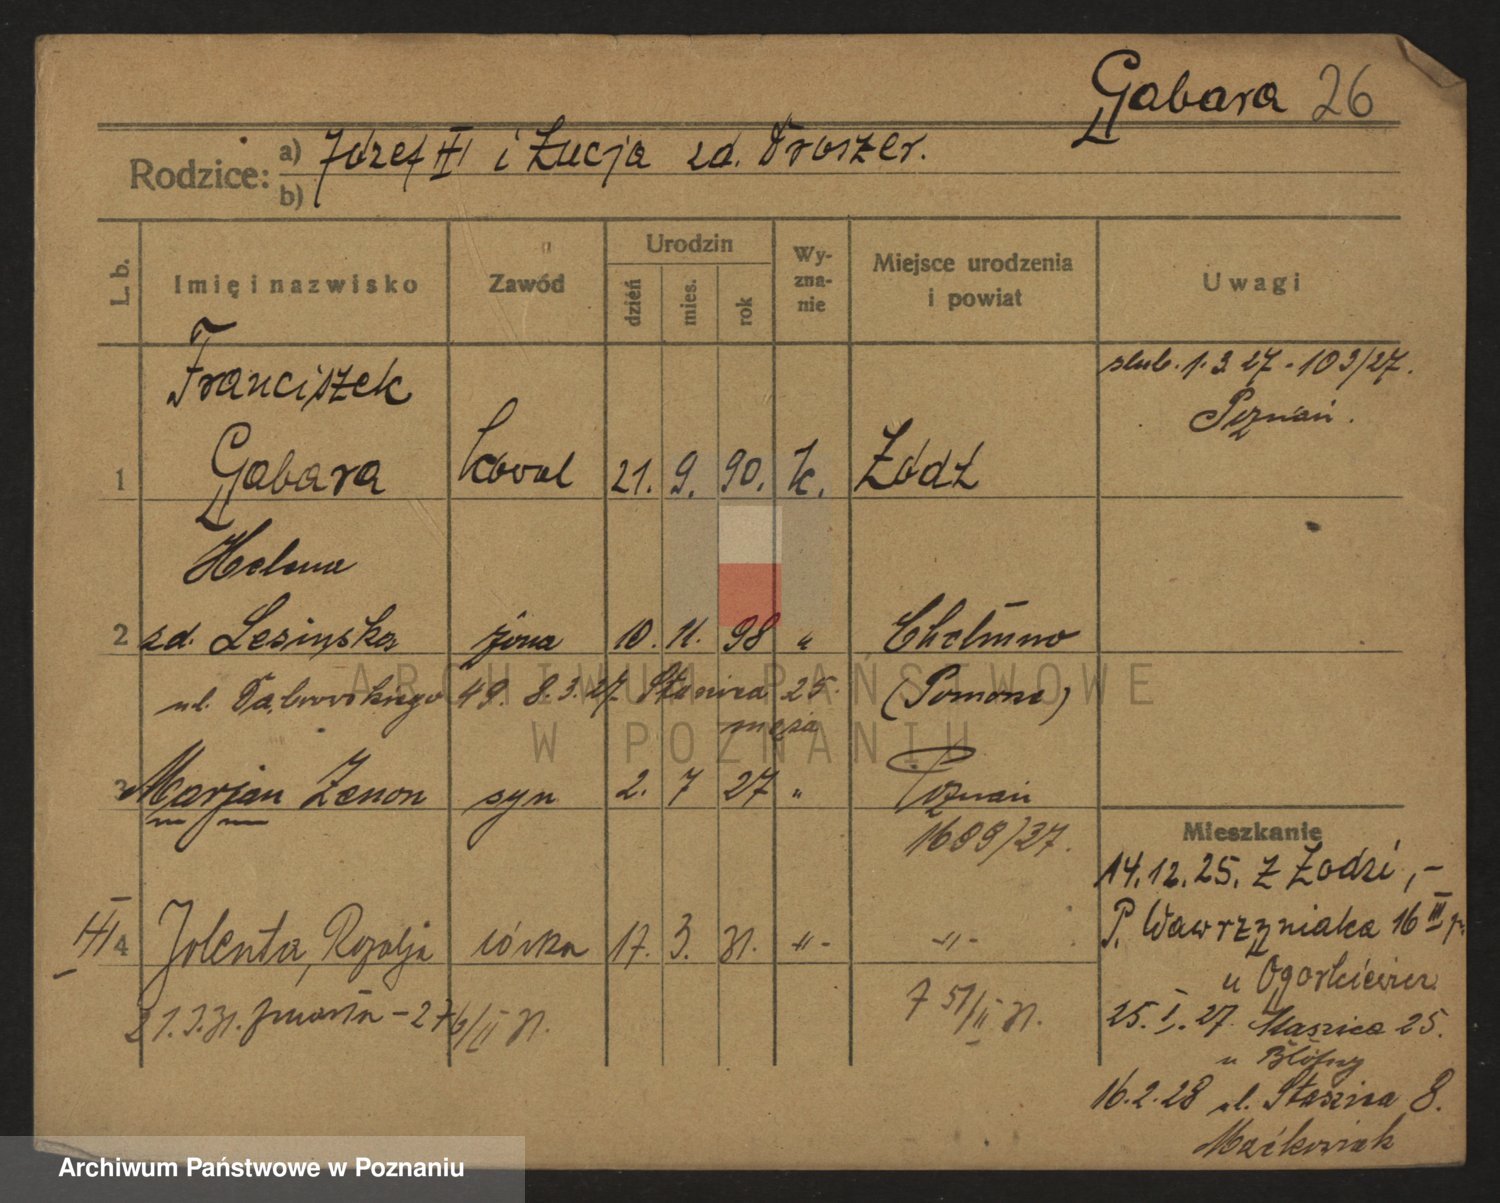 Gabara 26
Rodzice: a) Józef III i Łucja zd. Troszer.
b)
L. b.
Imię i nazwisko
Zawód
Urodzin
dzień
mies.
rok
Wy-
zna-
nie
Miejsce urodzenia
i powiat
Uwagi
Franciszek
ślub. 1. 3 27 - 103/27.
Poznań.
1 Gabara kowal 21. 9. 90. k. Łódź
Helena
2 zd. Lesińska żona 10. 11. 98 " Chełmno
ul. Dąbrowskiego 49. 8. 3. 27. Staszica 25. (Pomorze)
męża
3 Marjan Zenon syn 2. 7 27 " Poznań
1689/27.
Mieszkanie
14.12.25. z Łodzi, -
P. Wawrzyniaka 16 III p.
III 4 Jolenta, Rozalja córka 17. 3. 31. -"- -"-
u Ogórkiewicz
21.3.31. zmarła - 276/II 31. 751/II 31.
25. I. 27. Staszica 25.
u
16.2.28 ul. Staszica 8.
Maćkowiak
ARCHIWUM PAŃSTWOWE
W POZNANIU
Archiwum Państwowe w Poznaniu